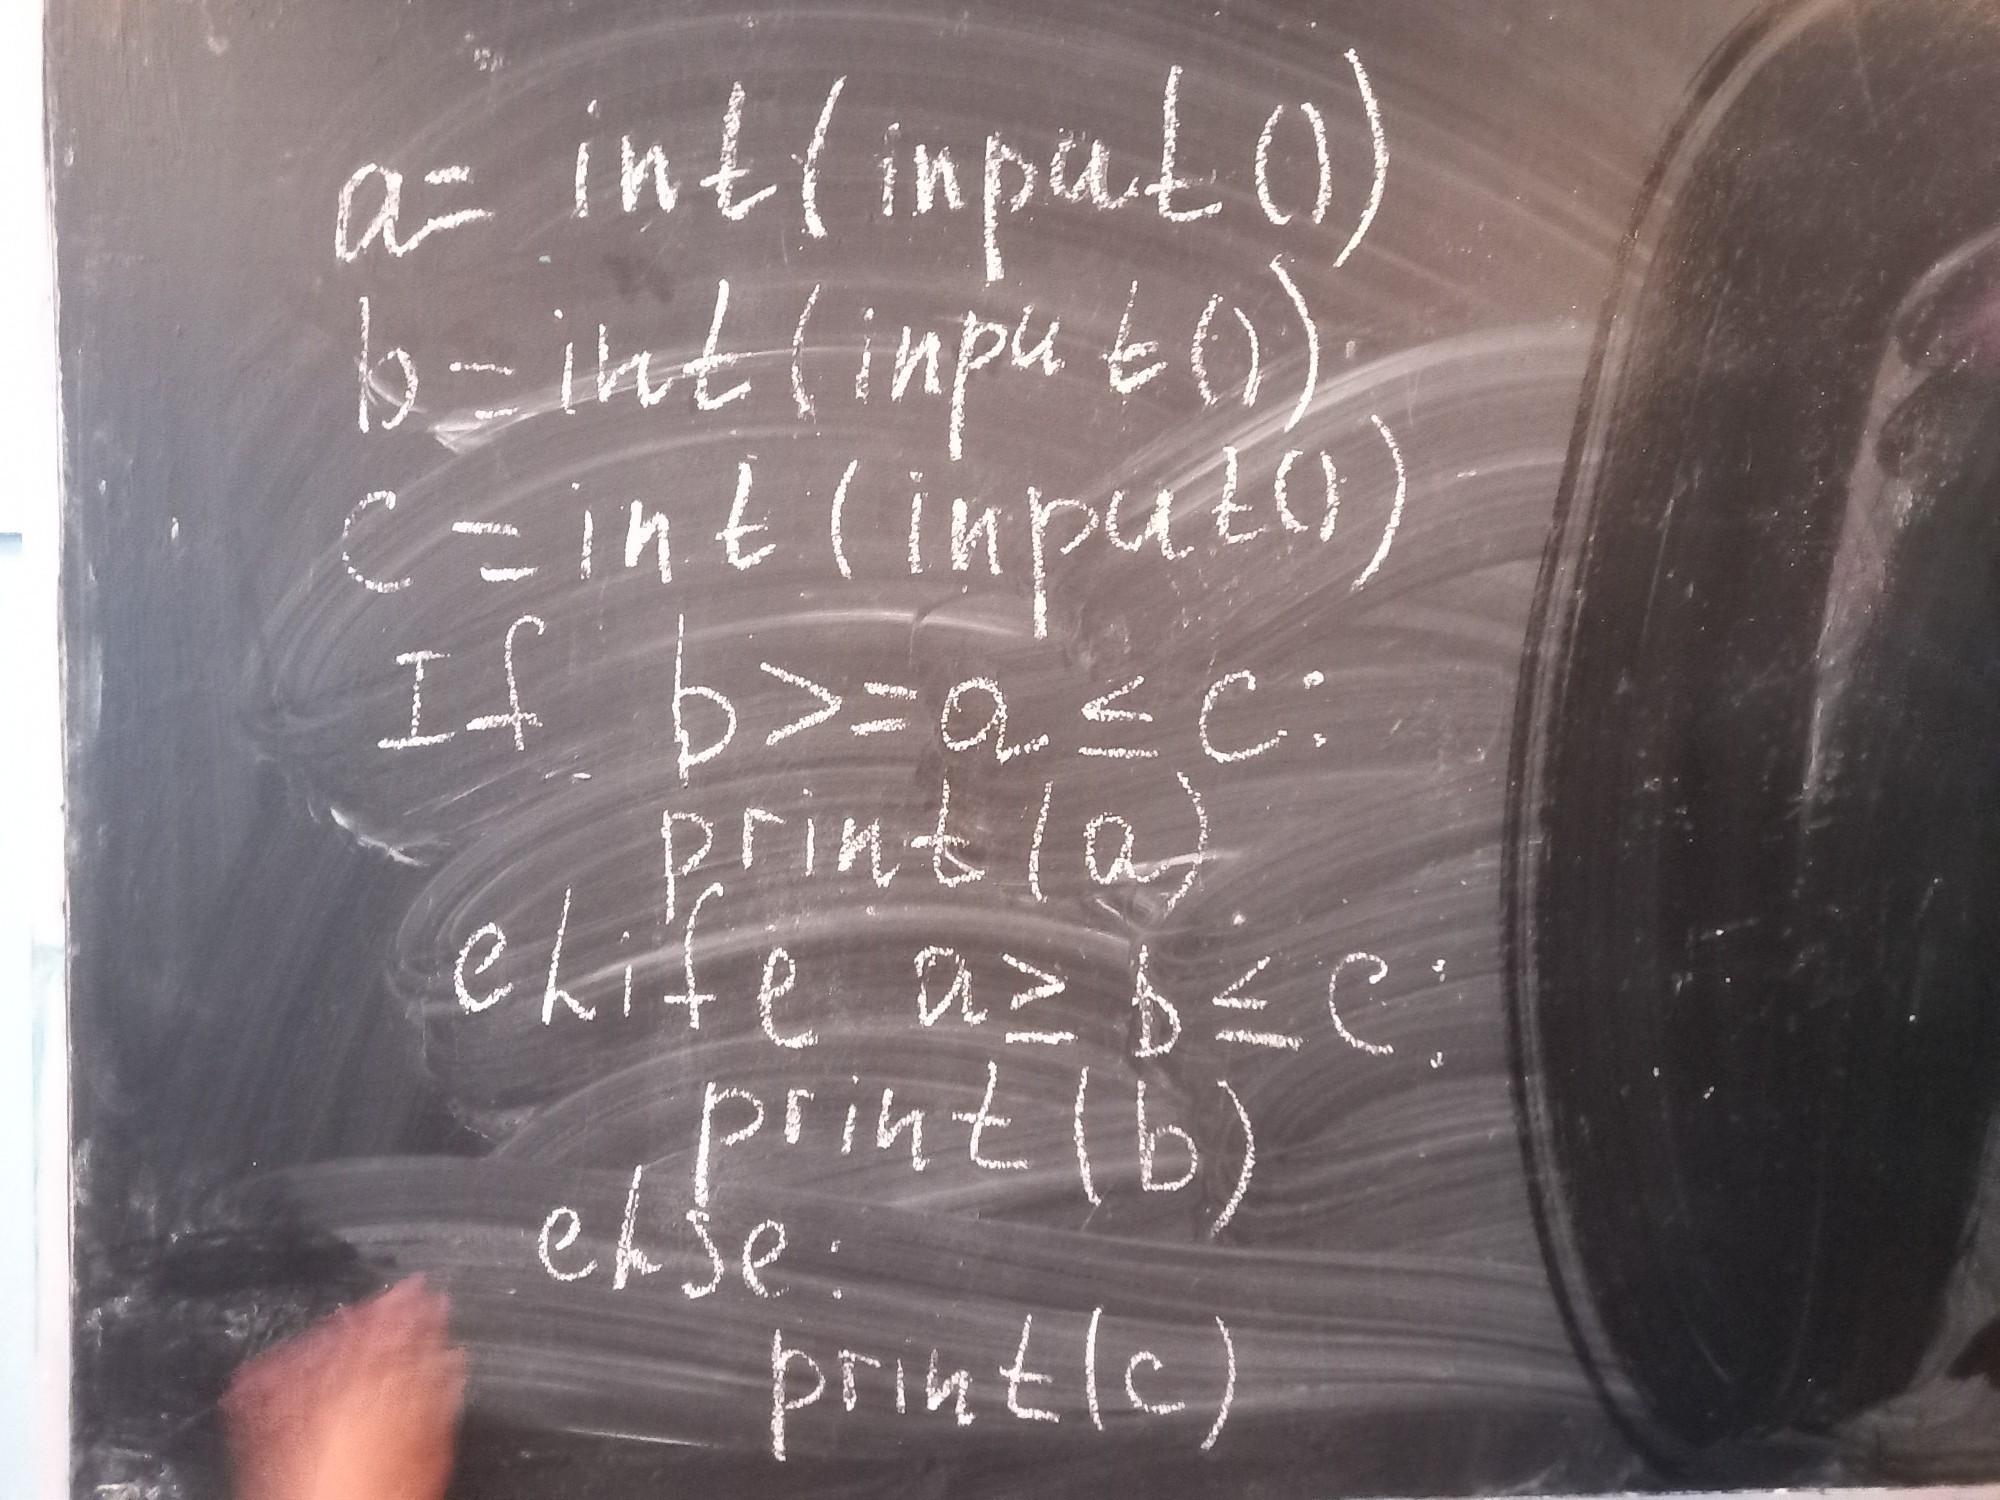 a= int(input())
b=int(input())
c=int(input())
If b>=a≤c:
print(a)
elife a≥b≤c:
print(b)
else:
print(c)